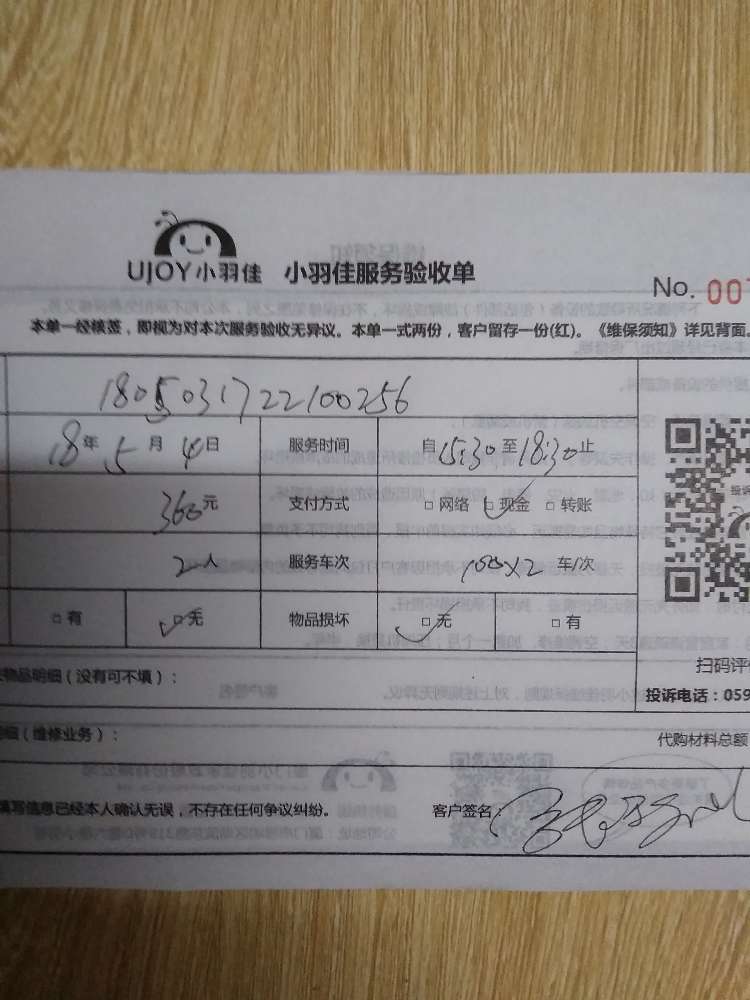 UJOY小羽佳 小羽佳服务验收单
No. 007
本单一经核签，即视为对本次服务验收无异议。本单一式两份，客户留存一份(红)。《维保须知》详见背面。
1805031722100256
18年5月4日 服务时间 自15:30至18:30止
360元 支付方式 □网络 □现金 □转账
2人 服务车次 100×2 车/次
□有 □无 物品损坏 □无 □有
物品明细（没有可不填）：
扫码评
投诉电话：059
细（维修业务）：
代购材料总额
填写信息已经本人确认无误，不存在任何争议纠纷。 客户签名：